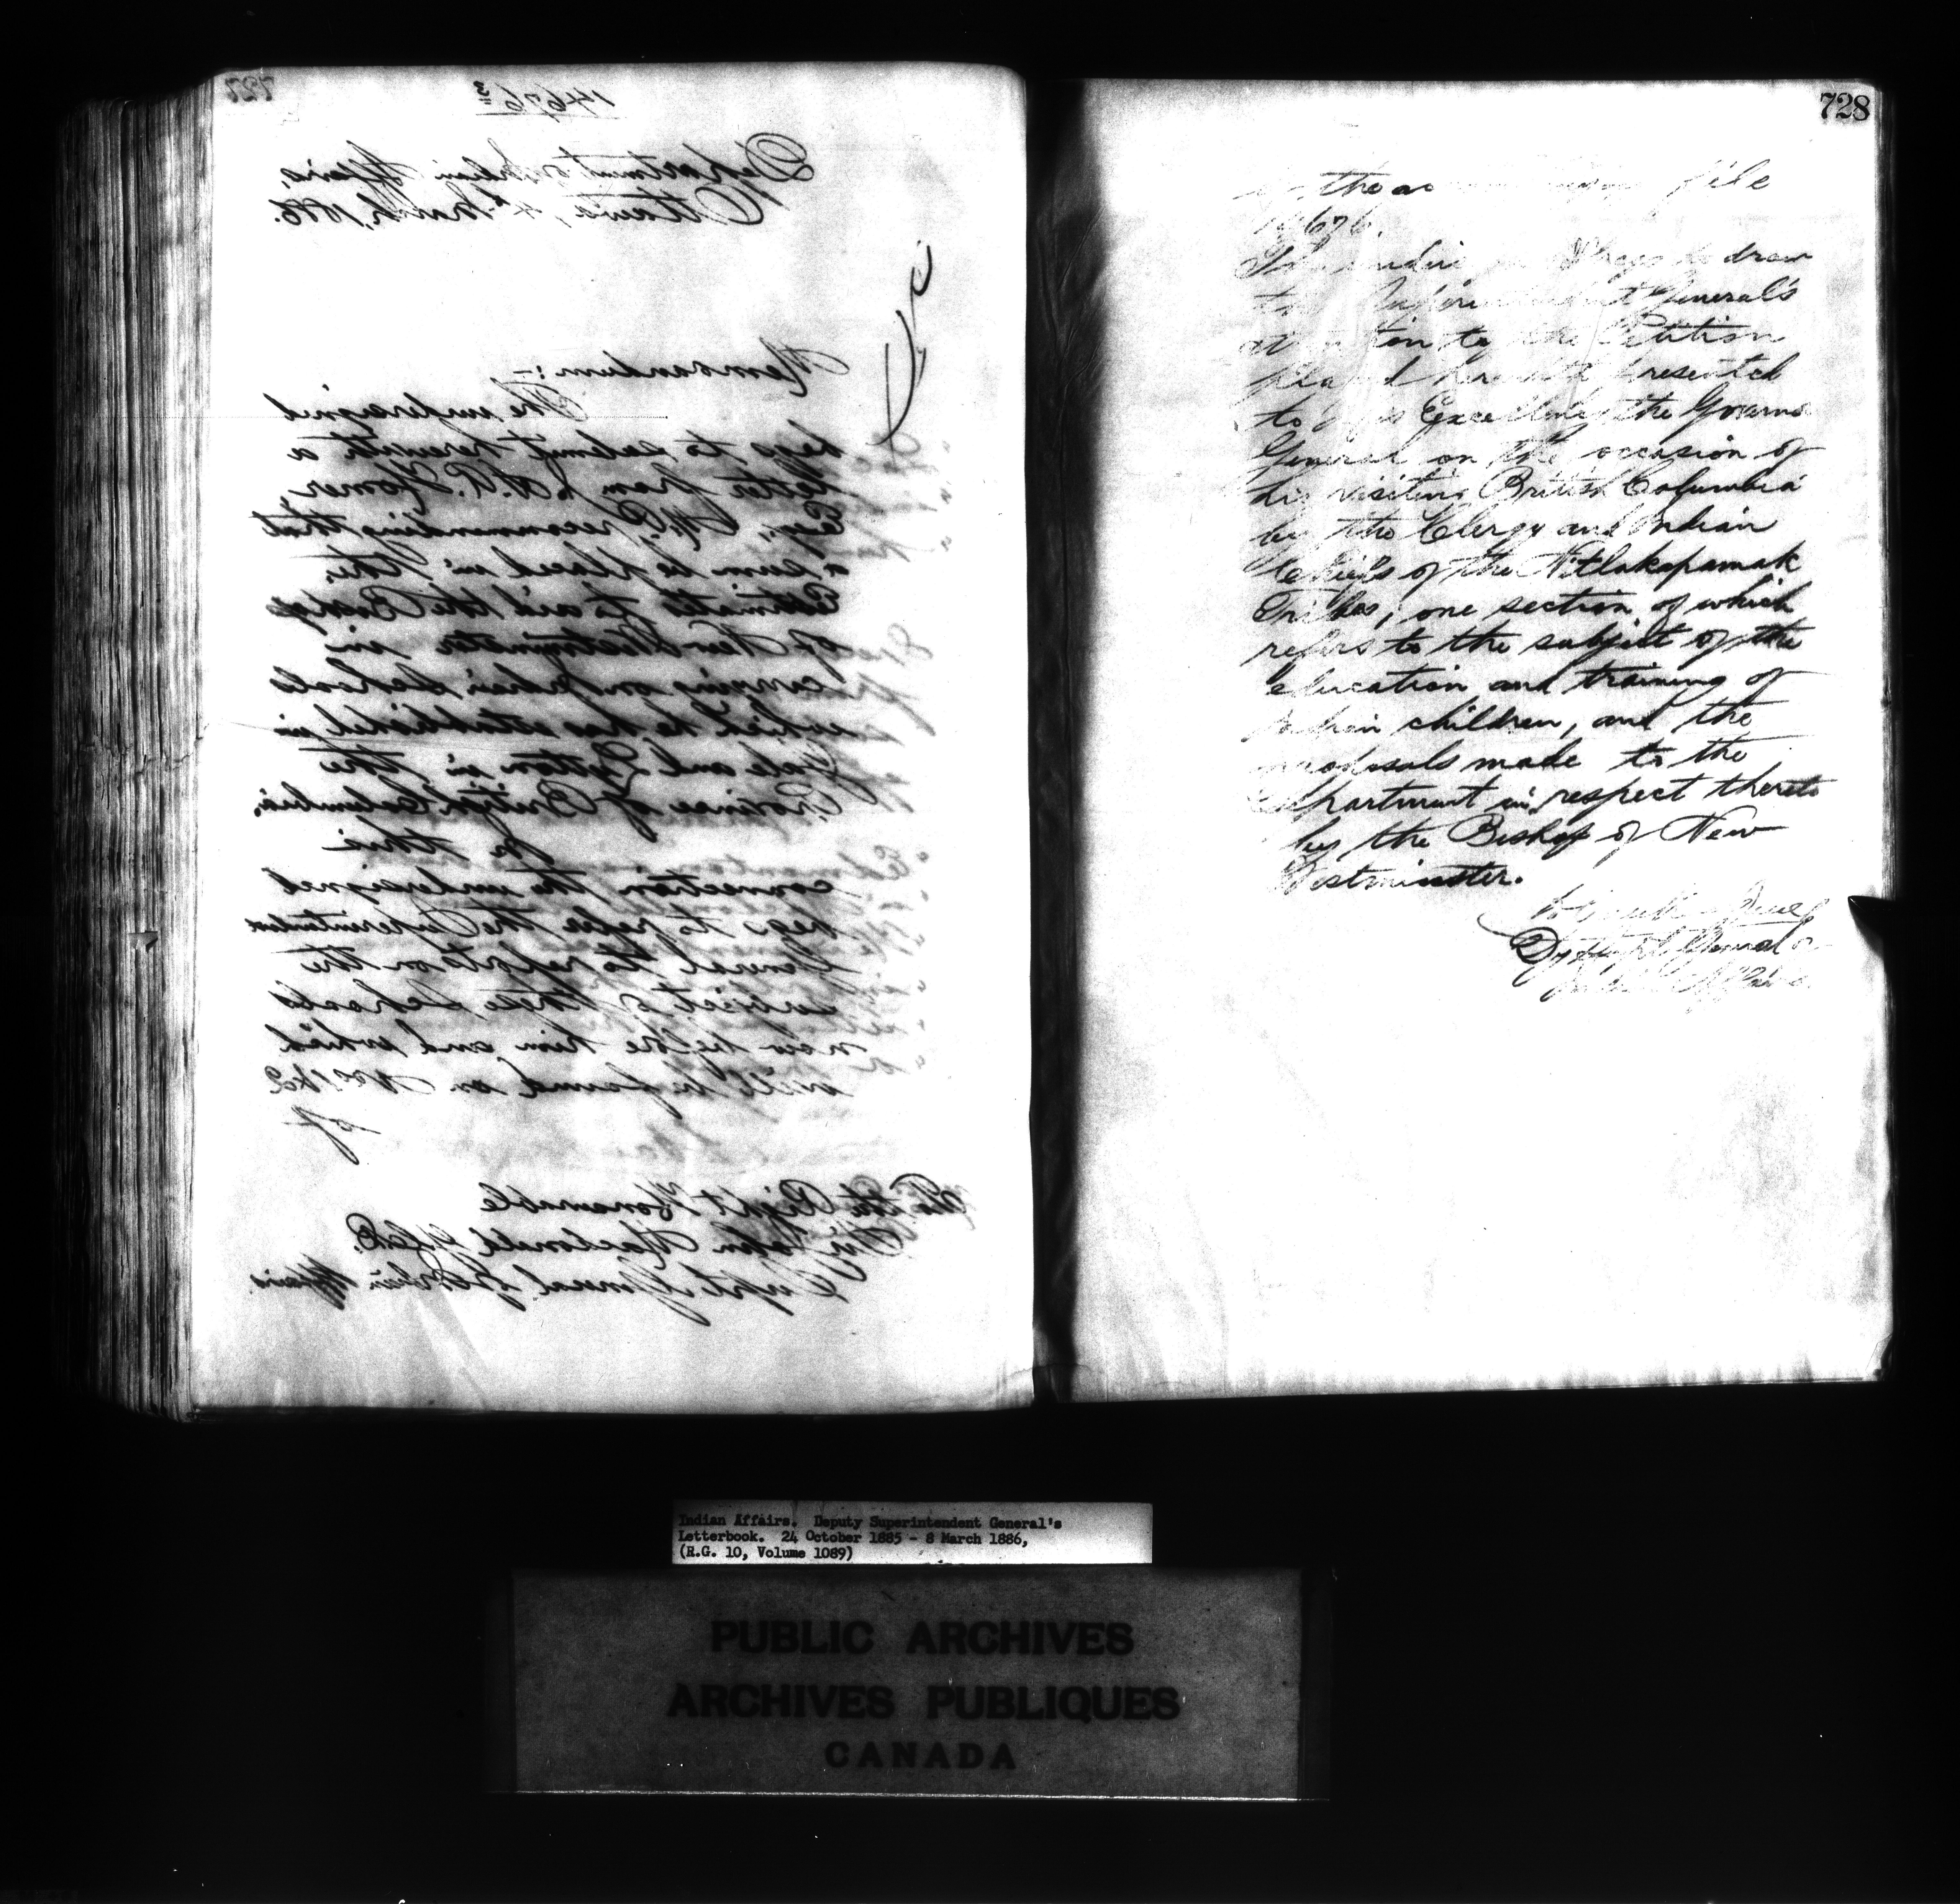 727
14676 3
Department of Indian Affairs,
Ottawa, 4th March, 1886.
Memorandum:-
The undersigned
begs to submit herewith a
letter from J. A. R. Homer,
Esq., M.P., recommending that
a sum be placed in the
Estimates to aid the Bishop
of New Westminster in
carrying on Indian Schools
which he has established in
Yale and Lytton in the
Province of British Columbia.
In this
connection the undersigned
begs to refer the Superintendent
General to reports on the
subject of these schools
now before him and which
will be found on
of
To the Right Honourable
Sir John Macdonald G.C.B.
Supt General of Indian Affairs.
728
the file
14676.
The begs to draw
the Superintendent General's
attention to the Petition
placed herewith presented
to His Excellency the Governor
General on the occasion of
his visiting British Columbia
by the Clergy and Indian
Chiefs of the Nitlakapamak
Tribes; one section of which
refers to the subject of the
education and training of
Indian children, and the
proposals made to the
Department in respect thereto
by the Bishop of New
Westminster.
Dy Supt General of
Indian Affairs
Indian Affairs. Deputy Superintendent General's
Letterbook. 24 October 1885 - 8 March 1886,
(R.G. 10, Volume 1089)
PUBLIC ARCHIVES
ARCHIVES PUBLIQUES
CANADA